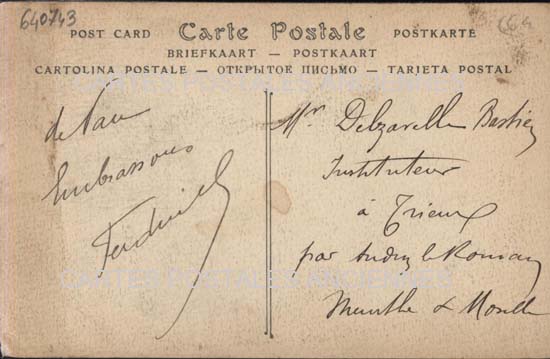 640743
POST CARD Carte Postale POSTKARTE
BRIEFKAART — POSTKAART
CARTOLINA POSTALE — ОТКРЫТОЕ ПИСЬМО — TARJETA POSTAL
CARTES POSTALES ANCIENNES
de Pau
Embrassons
Mr Delzarelle Bastien
Instituteur
à Trieux
par Audun le Roman
Meurthe & Moselle
CARTES POSTALES ANCIENNES